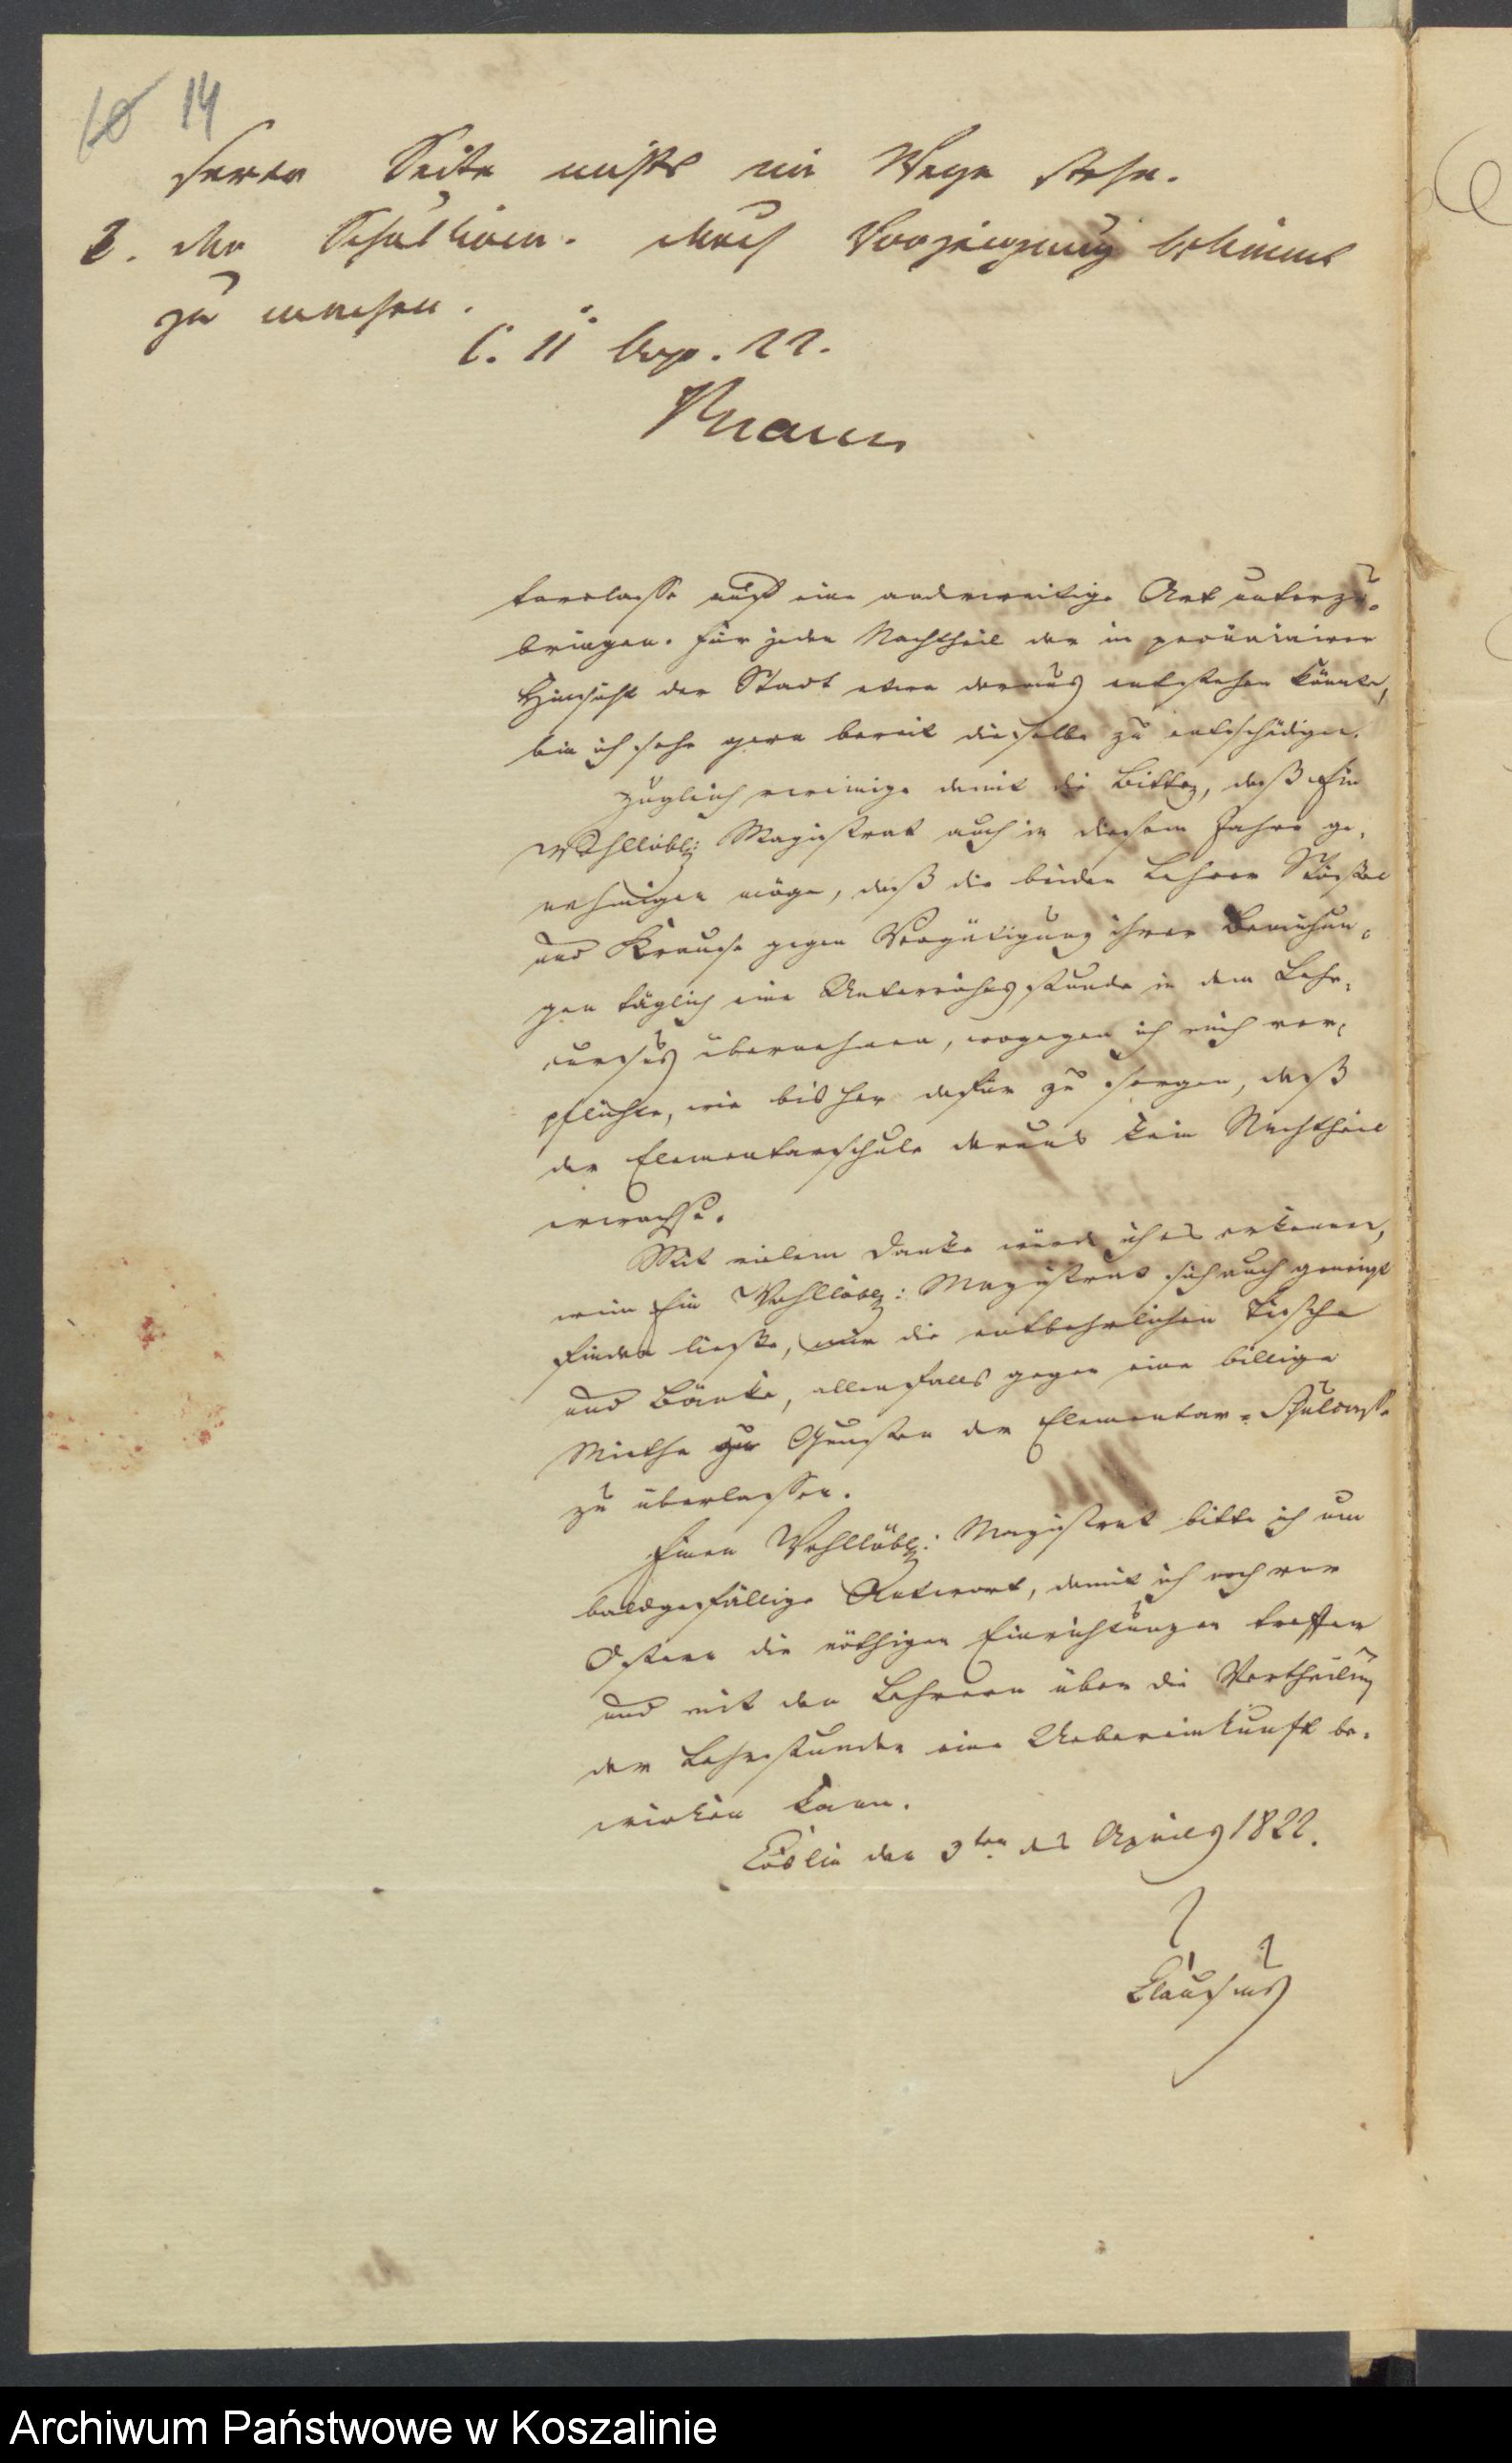 10 14
serer Seite nichts im Wege stehe.
2. der Schul Com. durch Vorzeigung bekannt
zu machen.
C. 11 Apr. 22.
Braun
terclasse auf eine anderweitige Art unterzu-
bringen. Für jeden Nachtheil der in pecuniairer
Hinsicht der Stadt etwa daraus entstehen könnte,
bin ich sehr gern bereit dieselbe zu entschädigen.
Zugleich vereinige damit die Bitte, daß Ein
Wohllöbl: Magistrat auch in diesem Jahre ge-
nehmigen möge, daß die beiden Lehrer
und Krause gegen Vergütigung ihrer Bemühun-
gen täglich eine Unterrichtsstunde in dem Lehr-
cursus übernehmen, wogegen ich mich ver-
pflichte, wie bisher dafür zu sorgen, daß
der Elementarschule daraus kein Nachtheil
erwachse.
Mit vielem Danke würde ich es erkennen,
wenn Ein Wohllöbl: Magistrat sich auch geneigt
finden ließe, mir die entbehrlichen Tische
und Bänke, allenfalls gegen eine billige
Miethe zu Gunsten der Elementar-Schulcasse
zu überlassen.
Einen Wohllöbl: Magistrat bitte ich um
baldgefällige Antwort, damit ich noch vor
Ostern die nöthigen Einrichtungen treffen
und mit den Lehrern über die Vertheilung
der Lehrstunden eine Uebereinkunft be-
wirken kann.
Cöslin den 3ten des Aprils 1822.
Clausius
Archiwum Państwowe w Koszalinie